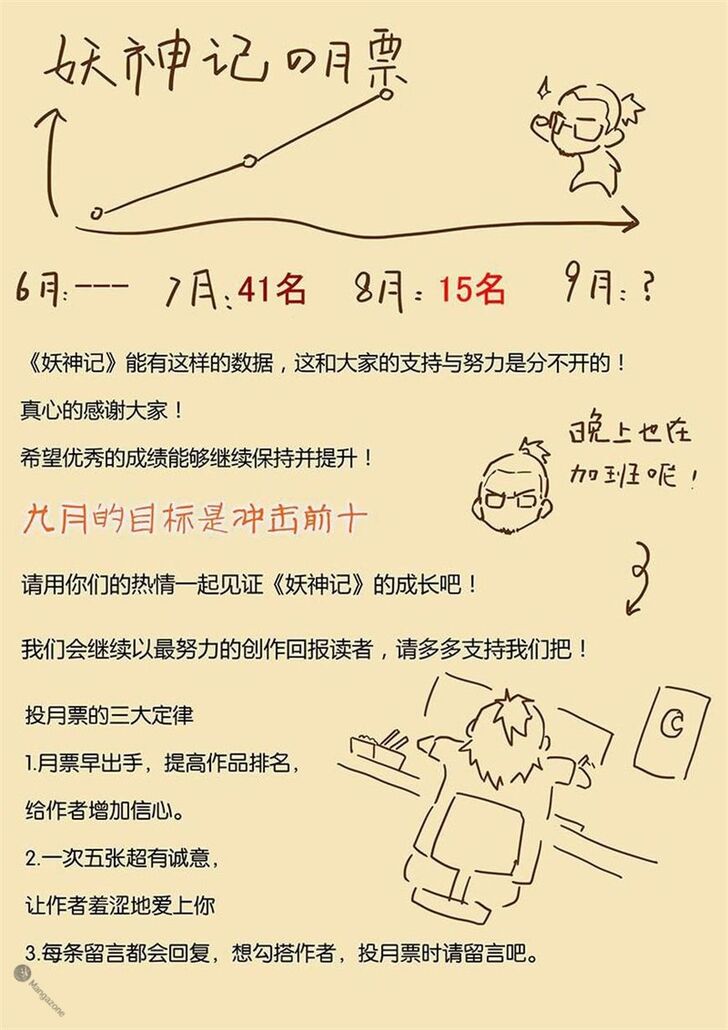 妖神记の月票
6月:--- 7月:41名 8月:15名 9月:?
《妖神记》能有这样的数据，这和大家的支持与努力是分不开的！
真心的感谢大家！
希望优秀的成绩能够继续保持并提升！
晚上也在
加班呢！
九月的目标是冲击前十
请用你们的热情一起见证《妖神记》的成长吧！
我们会继续以最努力的创作回报读者，请多多支持我们把！
投月票的三大定律
1.月票早出手，提高作品排名，
给作者增加信心。
2.一次五张超有诚意，
让作者羞涩地爱上你
3.每条留言都会回复，想勾搭作者，投月票时请留言吧。
Mangazone